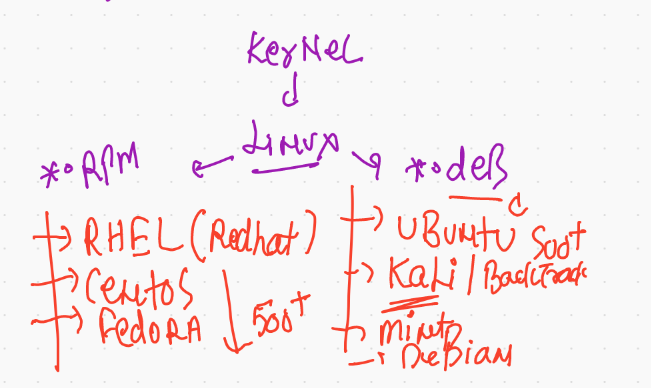 KerNeL
LiNUX
*.RPM
*.deB
RHEL (Redhat)
CentOS
FedoRA
500+
UBUNTU
500+
KaLi / BackTrack
MiNt
DeBiaN